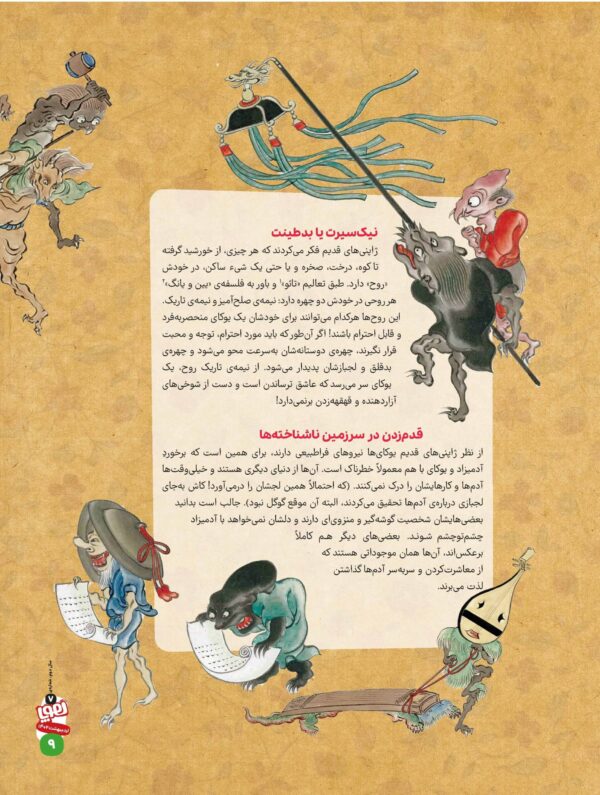 نیک‌سیرت یا بدطینت
ژاپنی‌های قدیم فکر می‌کردند که هر چیزی، از خورشید گرفته
تا کوه، درخت، صخره و یا حتی یک شیء ساکن، در خودش
«روح» دارد. طبق تعالیم «تائو»¹ و باور به فلسفه‌ی «یین و یانگ»²
هر روحی در خودش دو چهره دارد: نیمه‌ی صلح‌آمیز و نیمه‌ی تاریک.
این روح‌ها هرکدام می‌توانند برای خودشان یک یوکای منحصربه‌فرد
و قابل احترام باشند! اگر آن‌طور که باید مورد احترام، توجه و محبت
قرار نگیرند، چهره‌ی دوستانه‌شان به‌سرعت محو می‌شود و چهره‌ی
بدقلق و لجبازشان پدیدار می‌شود. از نیمه‌ی تاریک روح، یک
یوکای سر می‌رسد که عاشق ترساندن است و دست از شوخی‌های
آزاردهنده و قهقهه‌زدن برنمی‌دارد!
قدم‌زدن در سرزمین ناشناخته‌ها
از نظر ژاپنی‌های قدیم یوکای‌ها نیروهای فراطبیعی دارند، برای همین است که برخوردِ
آدمیزاد و یوکای با هم معمولاً خطرناک است. آن‌ها از دنیای دیگری هستند و خیلی‌وقت‌ها
آدم‌ها و کارهایشان را درک نمی‌کنند. (که احتمالاً همین لجشان را درمی‌آورد! کاش به‌جای
لجبازی درباره‌ی آدم‌ها تحقیق می‌کردند، البته آن موقع گوگل نبود). جالب است بدانید
بعضی‌هایشان شخصیت گوشه‌گیر و منزوی‌ای دارند و دلشان نمی‌خواهد با آدمیزاد
چشم‌توچشم شوند. بعضی‌های دیگر هم کاملاً
برعکس‌اند، آن‌ها همان موجوداتی هستند که
از معاشرت‌کردن و سربه‌سر آدم‌ها گذاشتن
لذت می‌برند.
۷
۹